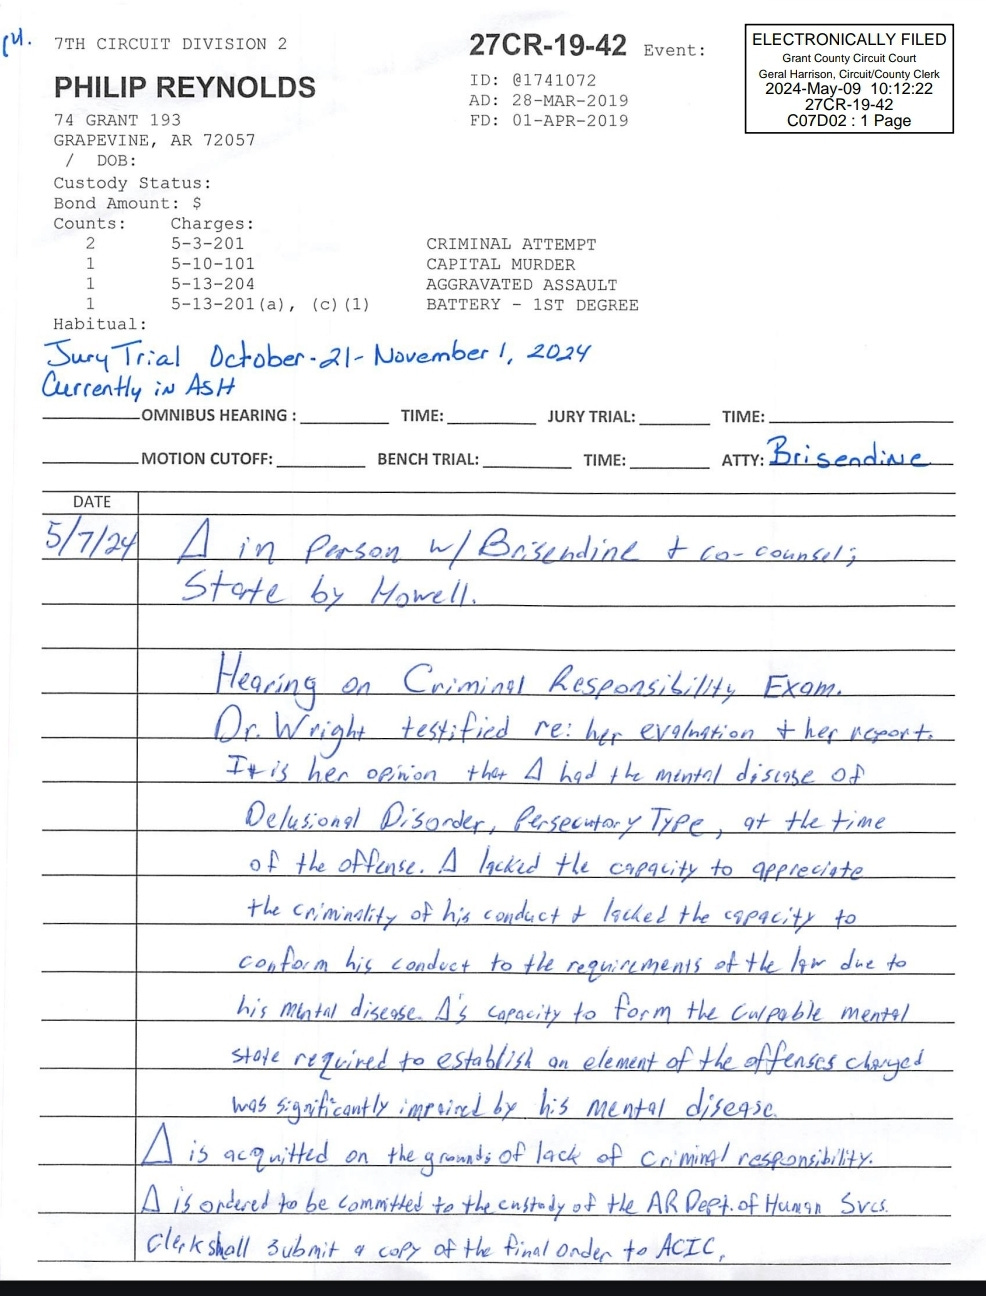 pl.
7TH CIRCUIT DIVISION 2
27CR-19-42 Event:
ELECTRONICALLY FILED
Grant County Circuit Court
Geral Harrison, Circuit/County Clerk
2024-May-09 10:12:22
27CR-19-42
C07D02 : 1 Page
PHILIP REYNOLDS
ID: @1741072
74 GRANT 193
AD: 28-MAR-2019
GRAPEVINE, AR 72057
FD: 01-APR-2019
/ DOB:
Custody Status:
Bond Amount: $
Counts: Charges:
2 5-3-201 CRIMINAL ATTEMPT
1 5-10-101 CAPITAL MURDER
1 5-13-204 AGGRAVATED ASSAULT
1 5-13-201(a), (c)(1) BATTERY - 1ST DEGREE
Habitual:
Jury Trial October-21-November 1, 2024
Currently in ASH
OMNIBUS HEARING : TIME: JURY TRIAL: TIME:
MOTION CUTOFF: BENCH TRIAL: TIME: ATTY: Brisendine
DATE
5/7/24 Δ in person w/ Brisendine + co-counsel;
State by Howell.
Hearing on Criminal Responsibility Exam.
Dr. Wright testified re: her evaluation + her report.
It is her opinion that Δ had the mental disease of
Delusional Disorder, Persecutory Type, at the time
of the offense. Δ lacked the capacity to appreciate
the criminality of his conduct + lacked the capacity to
conform his conduct to the requirements of the law due to
his mental disease. Δ's capacity to form the culpable mental
state required to establish an element of the offenses charged
was significantly impaired by his mental disease.
Δ is acquitted on the grounds of lack of criminal responsibility.
Δ is ordered to be committed to the custody of the AR Dept. of Human Svcs.
Clerk shall submit a copy of the final order to ACIC.